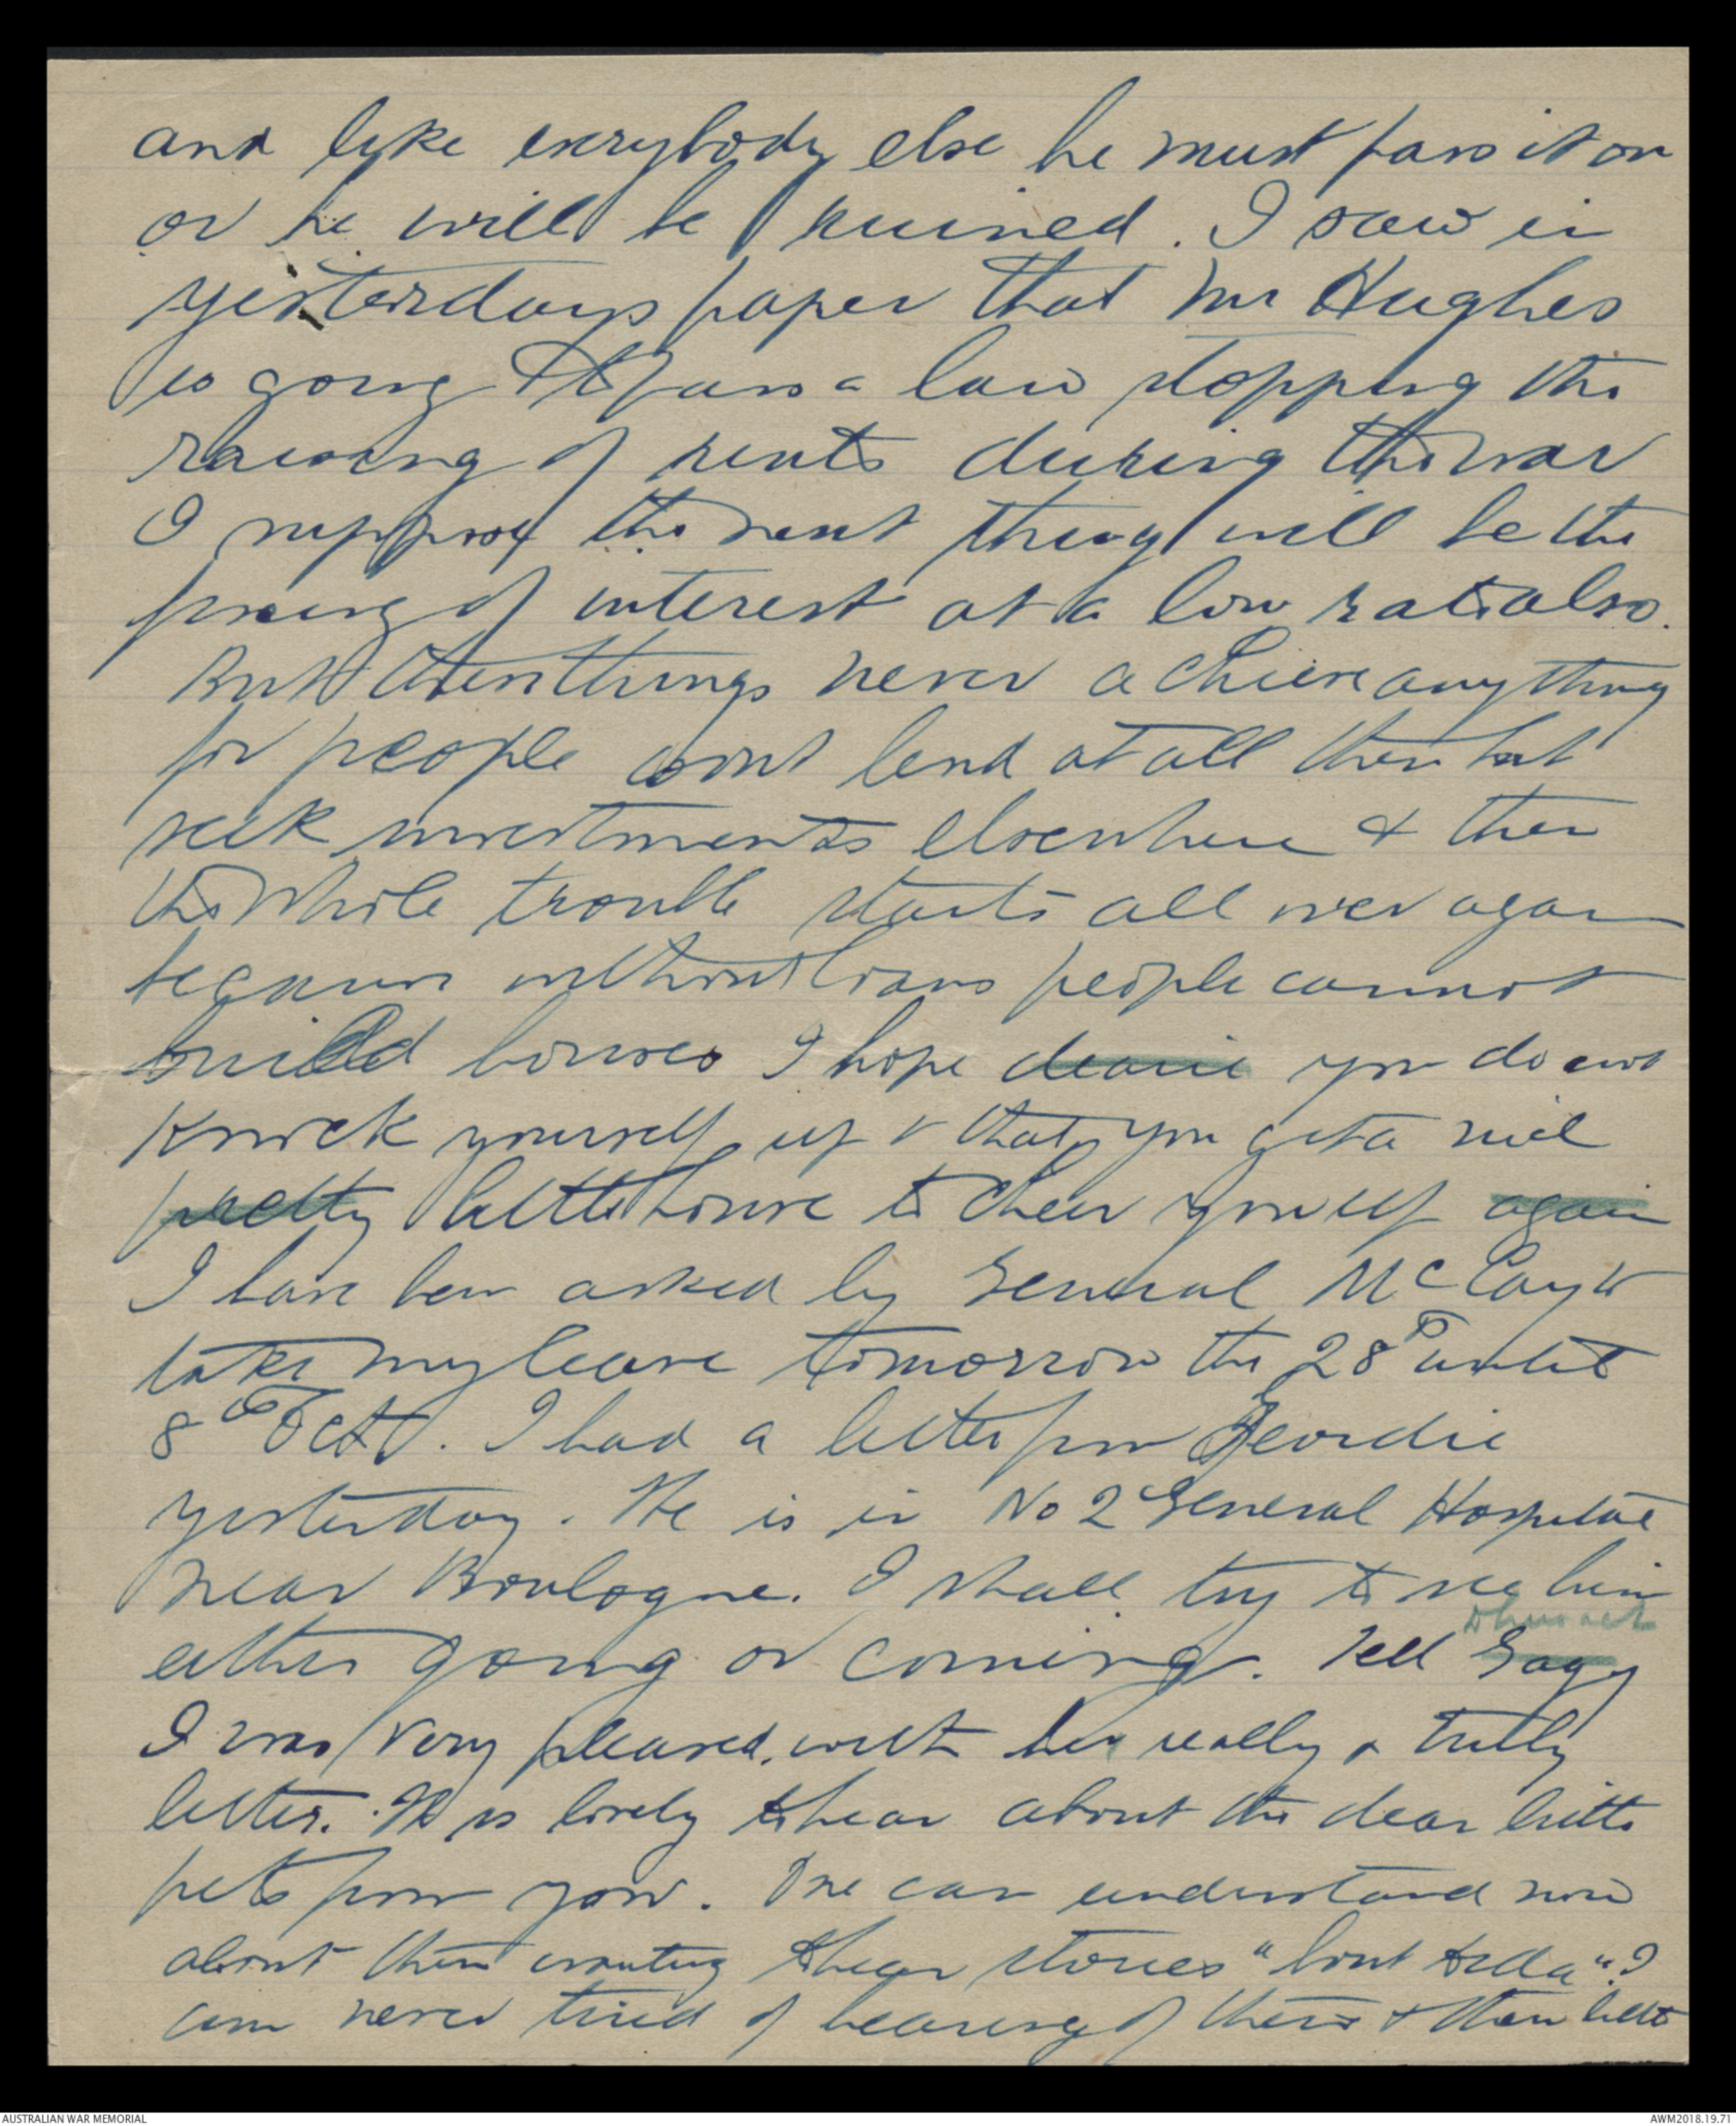 and like everybody else he must pass it on
or he will be ruined. I saw in
yesterdays paper that Mr Hughes
is going to pass a law stopping the
raising of rents during the war
I suppose the next thing will be the
fixing of interest at a low rate also.
But these things never achieve anything
for people wont lend at all then but
seek investments elsewhere & then
the whole trouble starts all over again
because without loans people cannot
build houses I hope dearie you do not
knock yourself up & that you get a nice
pretty little house to cheer yourself again
I have been asked by General McCay to
take my leave tomorrow the 28th until
8th Oct. I had a letter from Geordie
yesterday. He is in No 2 General Hospital
near Boulogne. I shall try to see him
either going or coming. Tell Gagy
I was very pleased with her really & truly
letter. It is lovely to hear about the dear little
pets from you. One can understand now
about them wanting to hear stories "bout
am never tired of hearing of them & their little
AUSTRALIAN WAR MEMORIAL
AWM2018.19.71